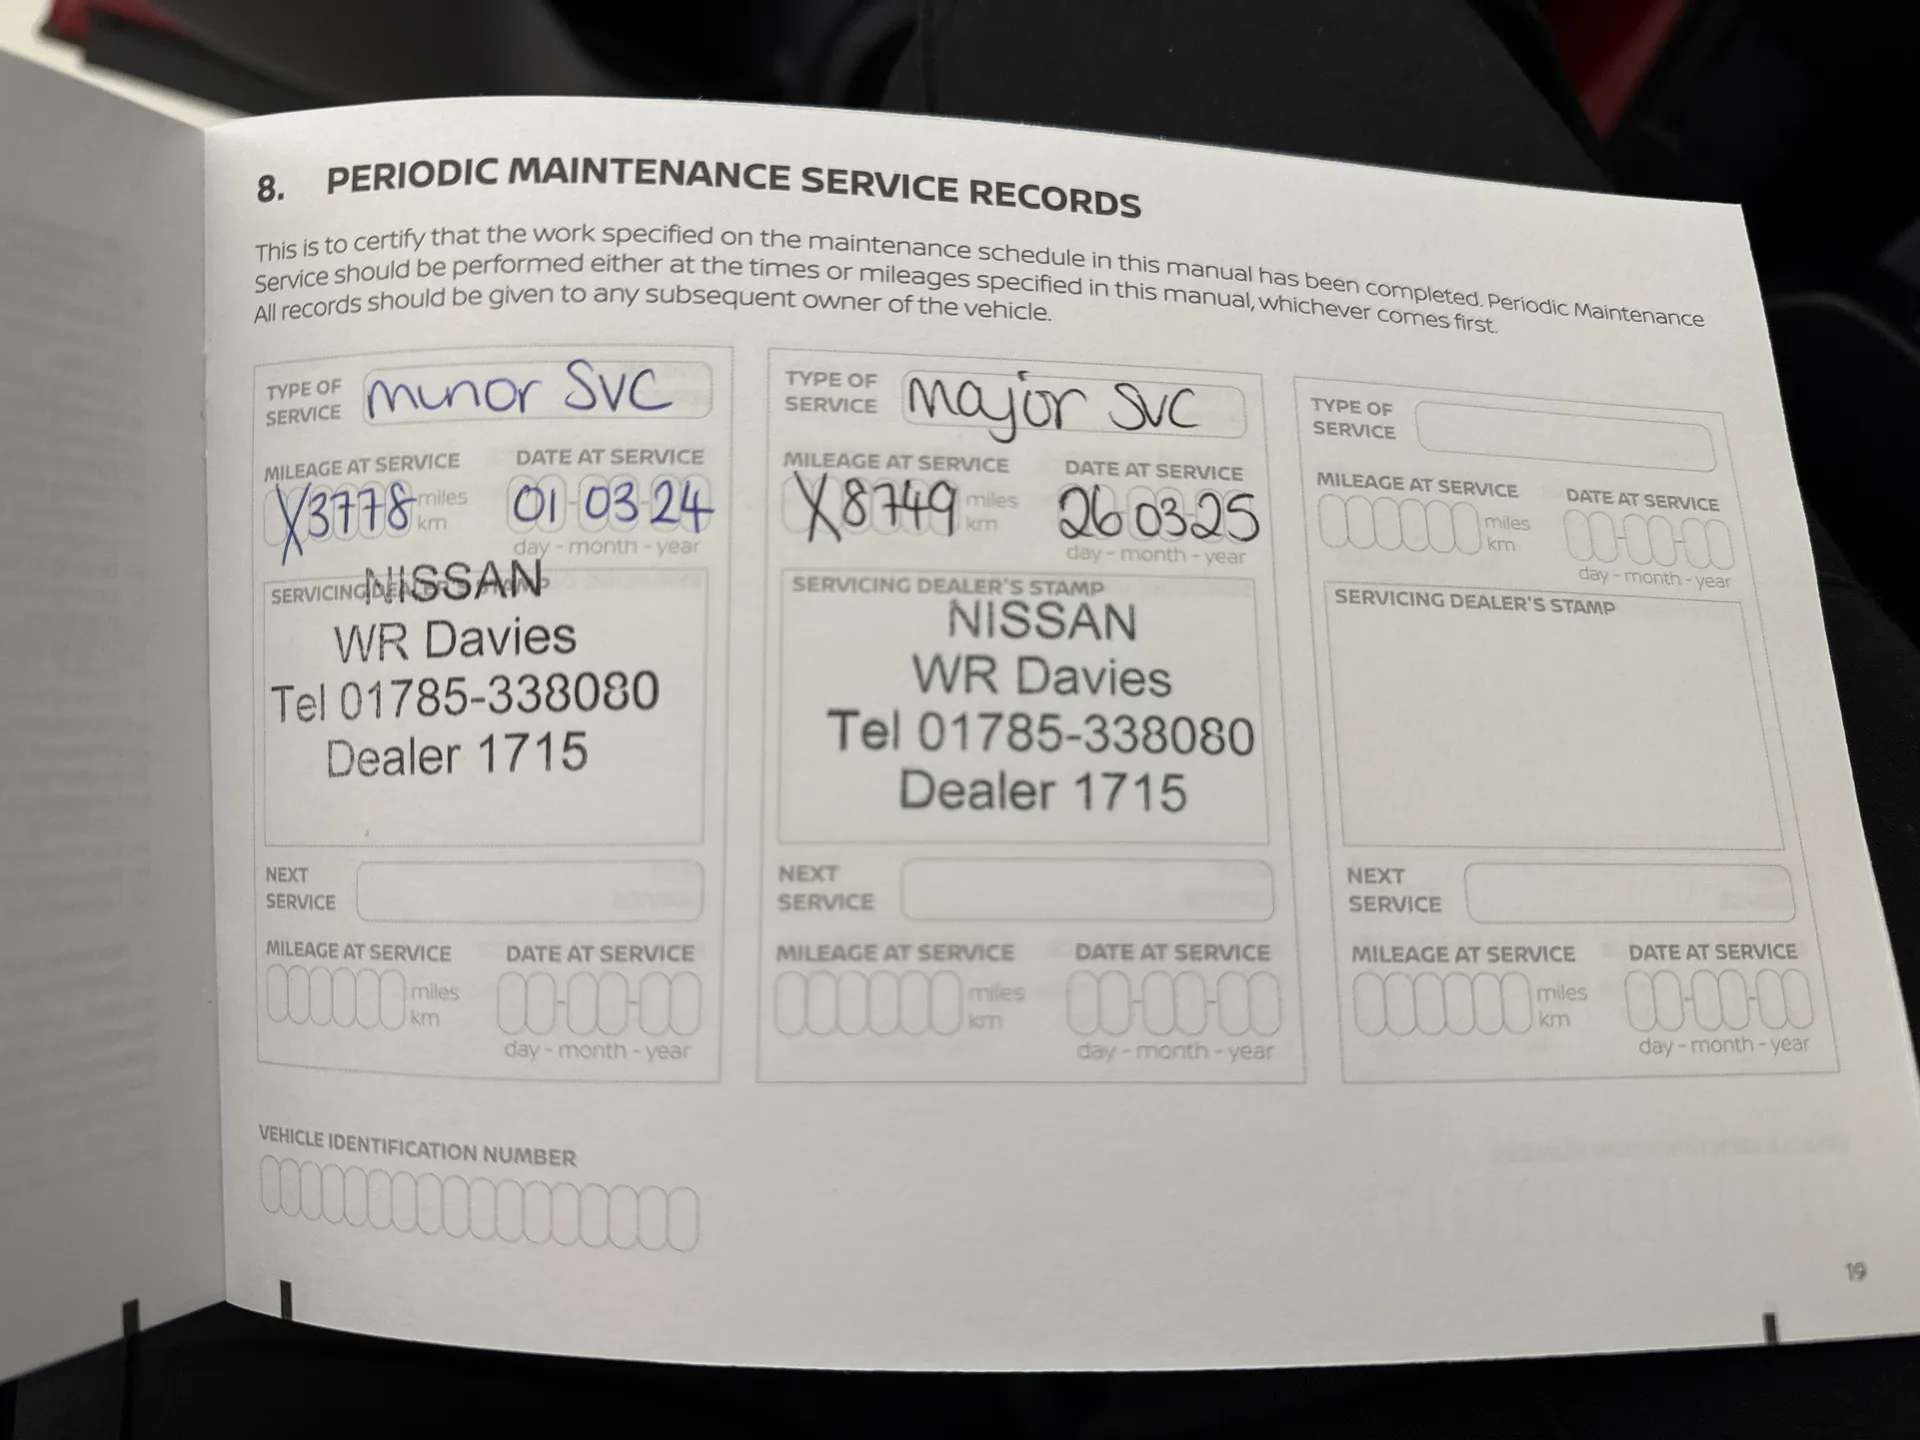 8. PERIODIC MAINTENANCE SERVICE RECORDS
This is to certify that the work specified on the maintenance schedule in this manual has been completed. Periodic Maintenance
Service should be performed either at the times or mileages specified in this manual, whichever comes first.
All records should be given to any subsequent owner of the vehicle.
TYPE OF
SERVICE
minor SVC
MILEAGE AT SERVICE
X3778 miles
km
DATE AT SERVICE
01-03-24
day - month - year
SERVICING DEALER'S STAMP
NISSAN
WR Davies
Tel 01785-338080
Dealer 1715
NEXT
SERVICE
MILEAGE AT SERVICE
miles
km
DATE AT SERVICE
day - month - year
TYPE OF
SERVICE
Major SVC
MILEAGE AT SERVICE
X8749 miles
km
DATE AT SERVICE
26 03 25
day - month - year
SERVICING DEALER'S STAMP
NISSAN
WR Davies
Tel 01785-338080
Dealer 1715
NEXT
SERVICE
MILEAGE AT SERVICE
miles
km
DATE AT SERVICE
day - month - year
TYPE OF
SERVICE
MILEAGE AT SERVICE
miles
km
DATE AT SERVICE
day - month - year
SERVICING DEALER'S STAMP
NEXT
SERVICE
MILEAGE AT SERVICE
miles
km
DATE AT SERVICE
day - month - year
VEHICLE IDENTIFICATION NUMBER
19